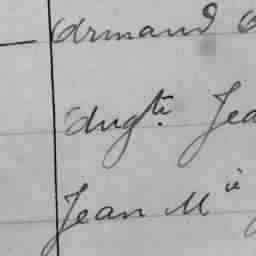 Armand
Augte. Jea
Jean Mie